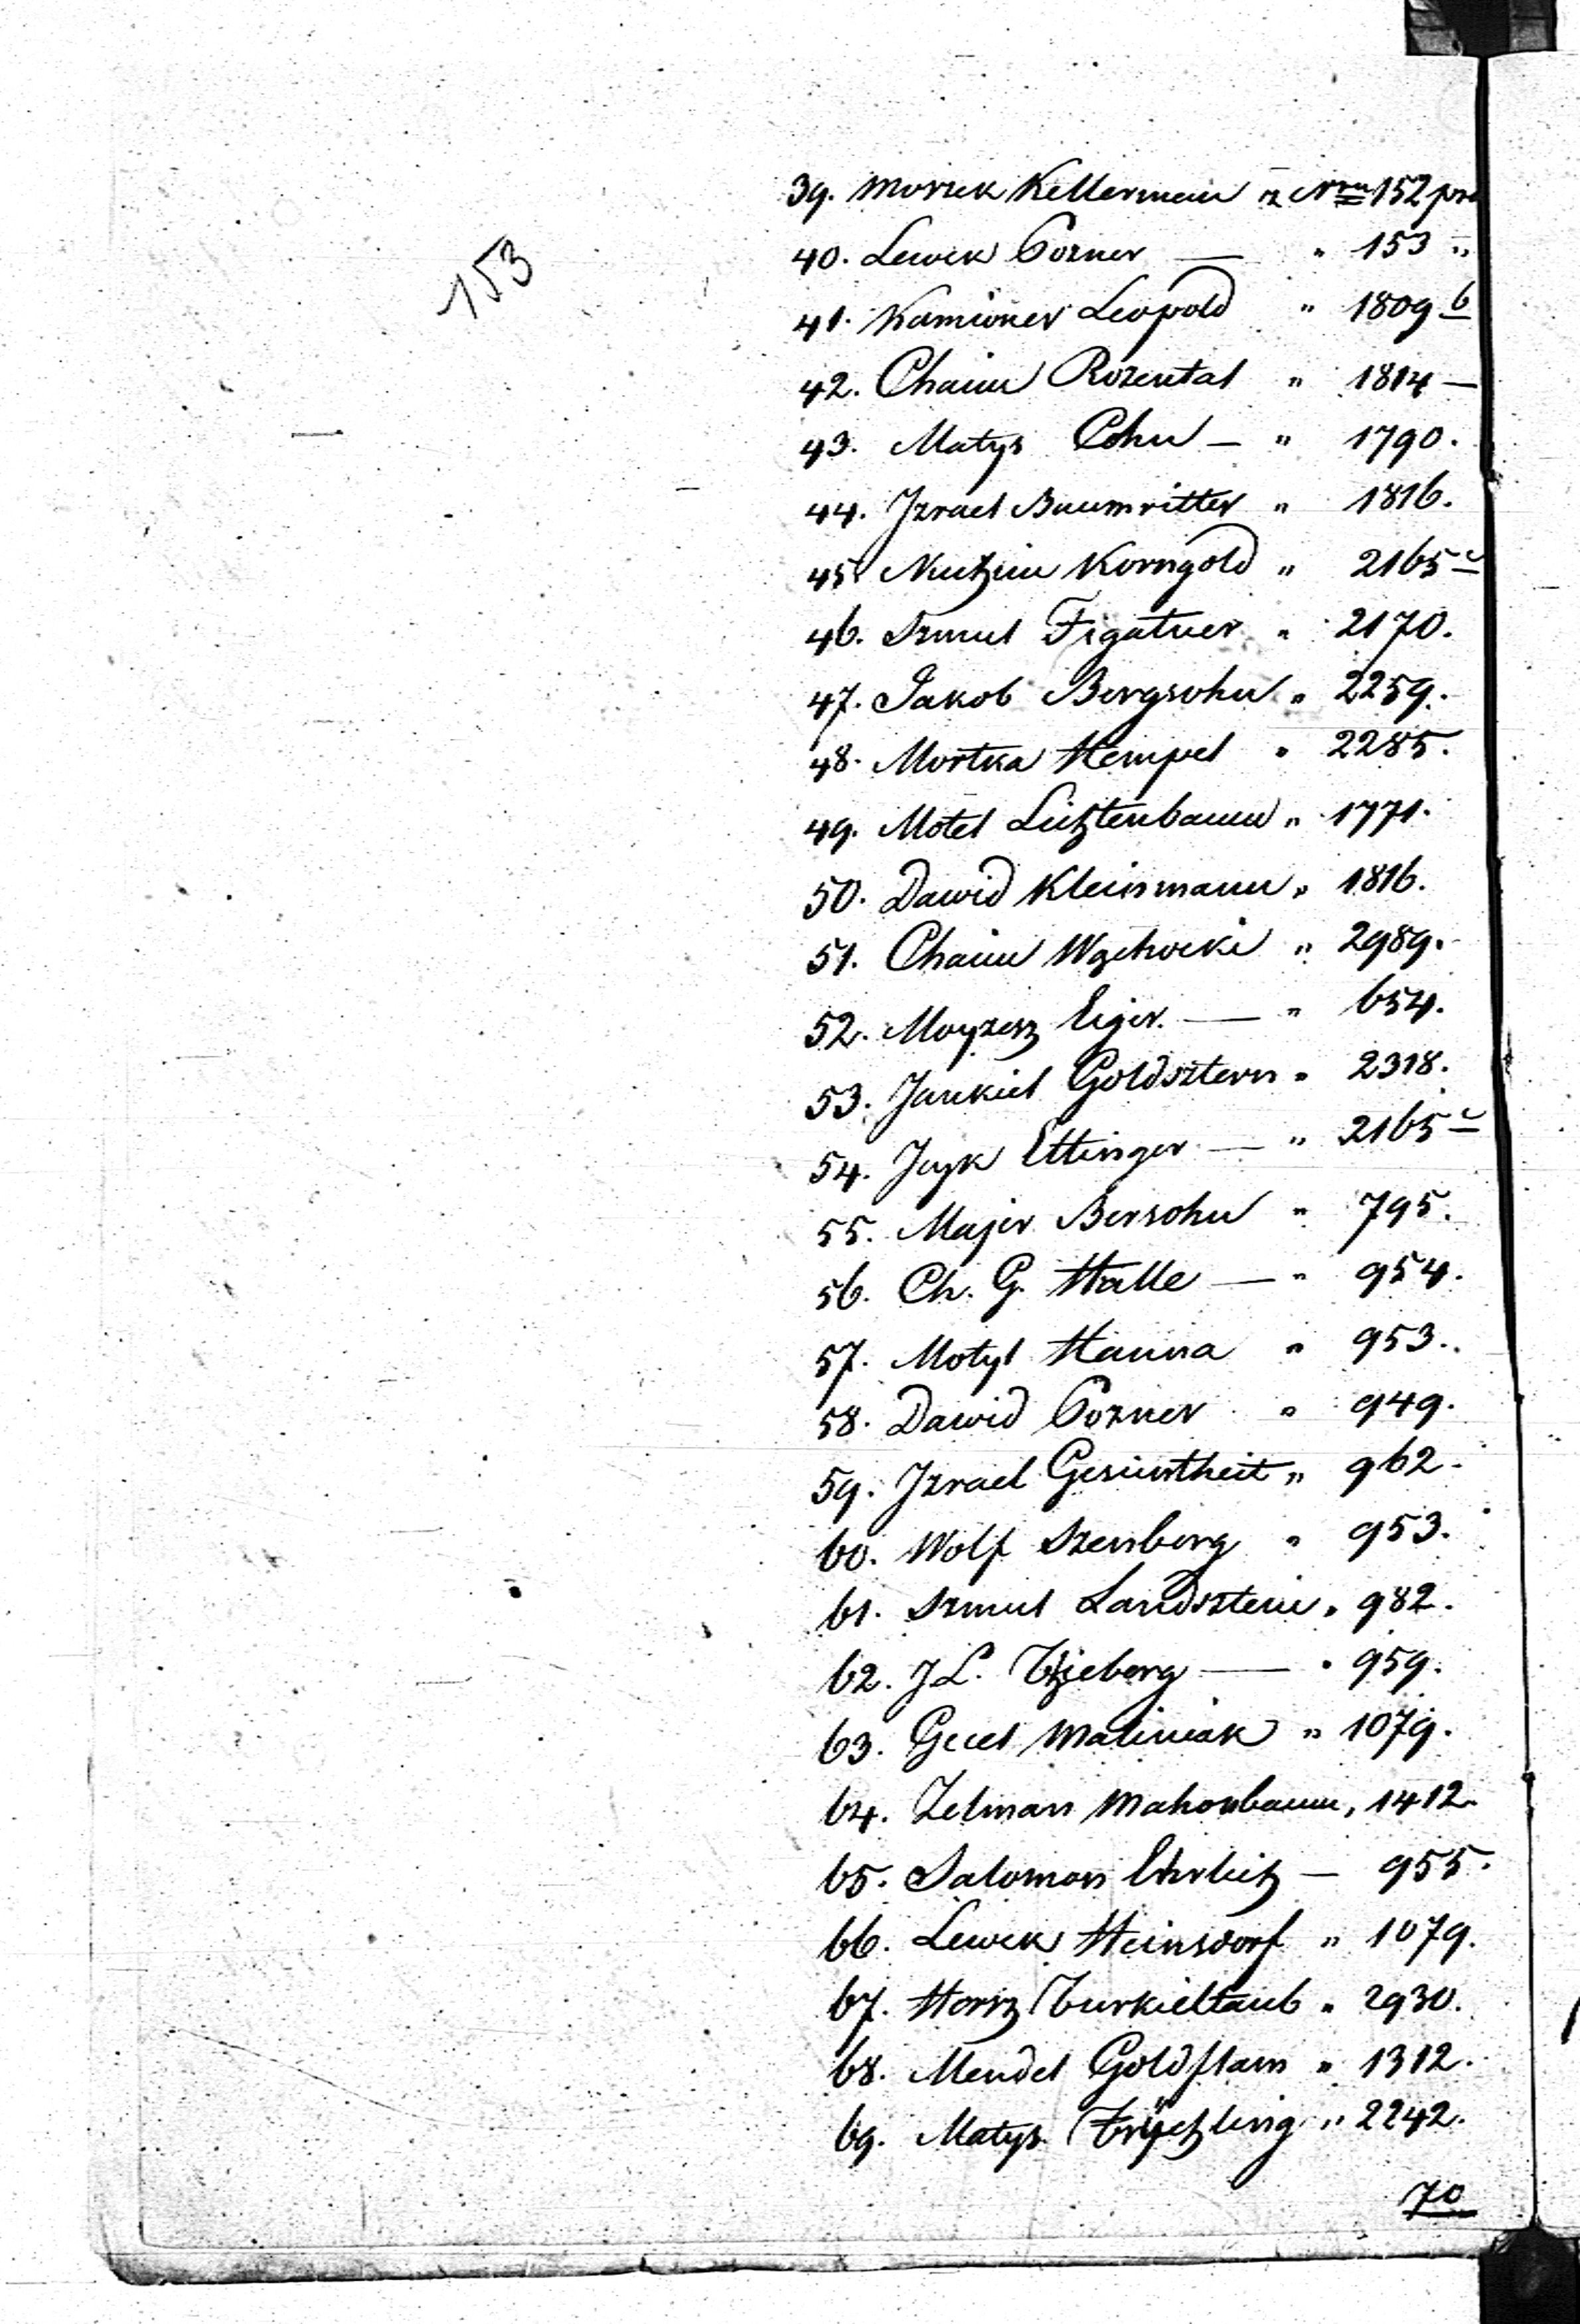 153
39. Morzek Kellerman z Nru 152 pra
40. Lewek Pozner — " 153 "
41. Kamioner Leopold " 1809 b
42. Chaim Rozental " 1814 —
43. Matys Cohn — " 1790.
44. Izrael Baumritter " 1816.
45. Korngold " 2165 c
46. Szmul Figatner " 2170.
47. Jakob Bergsohn " 2259.
48. Mortka Hempel " 2285.
49. Motel Lichtenbaum " 1771.
50. Dawid Kleinmann " 1816.
51. Chaim Wychocki " 2989.
52. Moyzesz Eiger. — " 654.
53. Jankiel Goldsztern " 2318.
54. Icyk Ettinger — " 2165 c
55. Majer Bersohn " 795.
56. Ch. G. Halle — " 954.
57. Motyl Hanna " 953.
58. Dawid Pozner " 949.
59. Izrael Gesuntheit " 962.
60. Wolf Szenberg " 953.
61. Szmul Landsztein " 982.
62. J L. — " 959.
63. Gecel Maliniak " 1079.
64. Zelman Mahonbaum " 1412.
65. Salomon Ehrlich — 955.
66. Lewek Heinsdorf " 1079.
67. Hersz Turkieltaub " 2930.
68. Mendel Goldflam " 1312.
69. Matys " 2242.
70